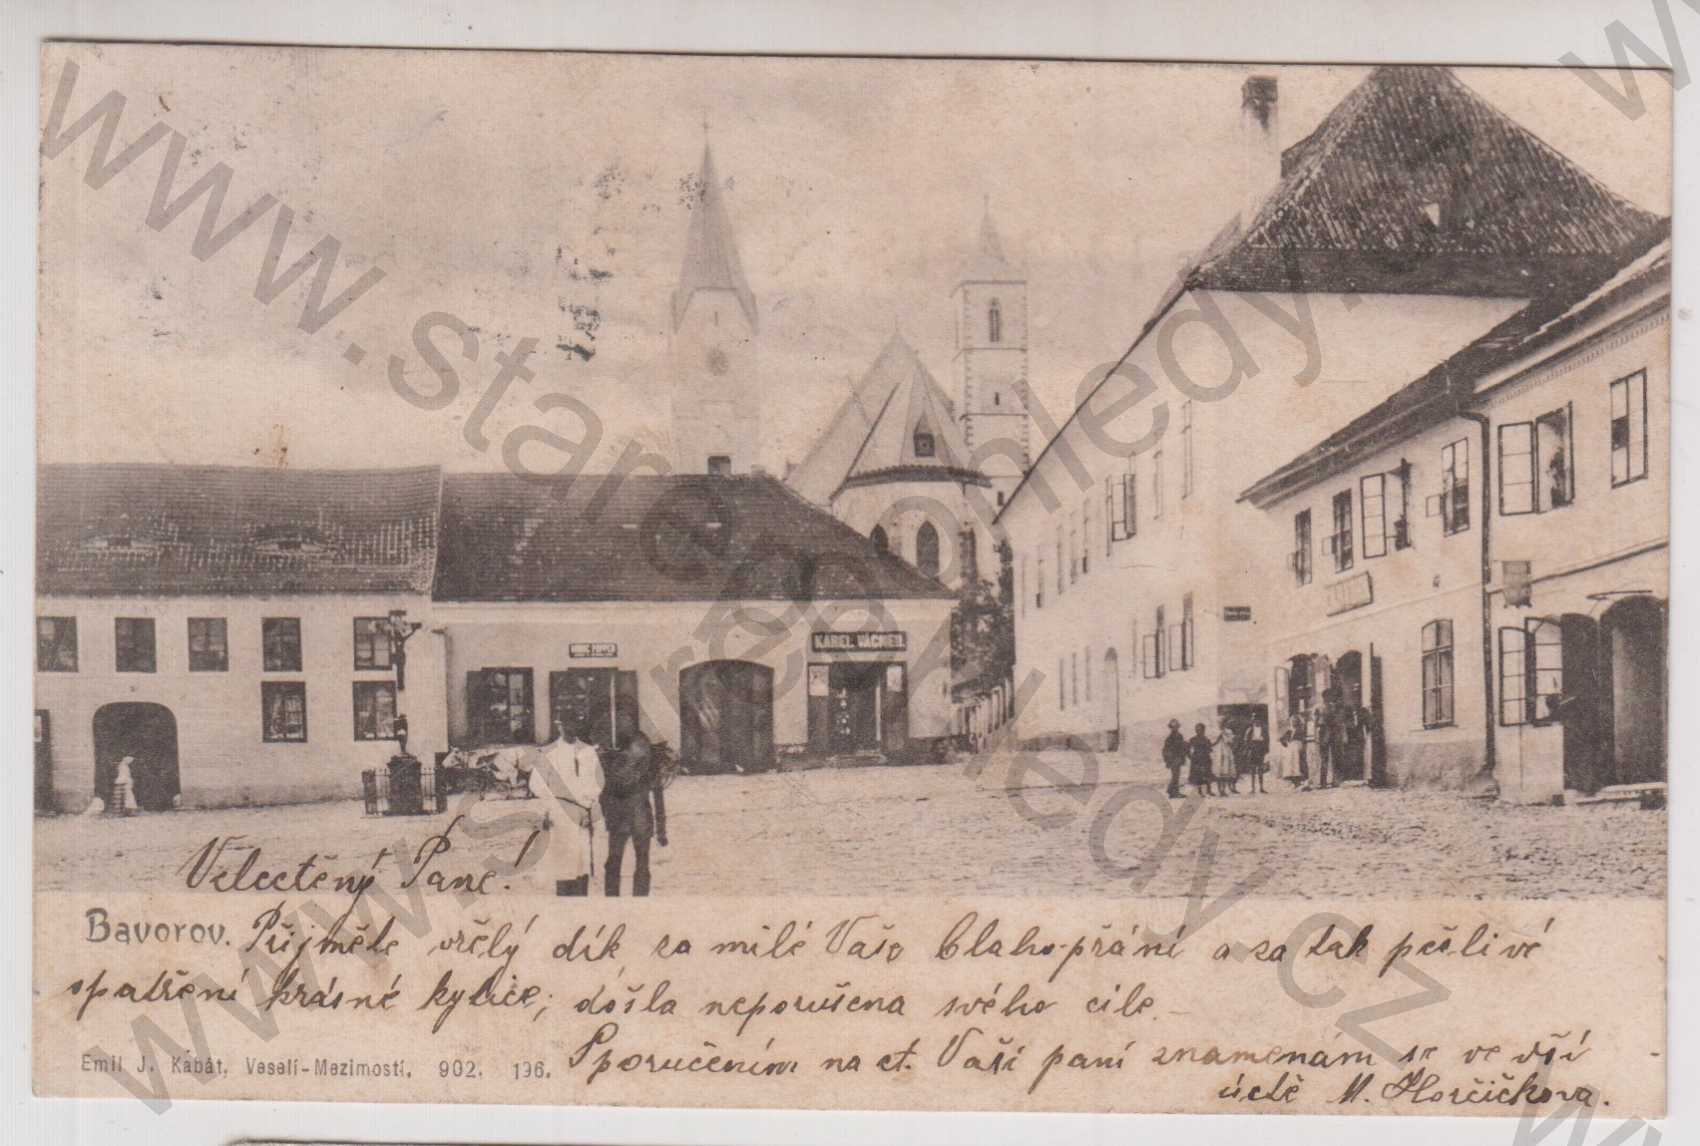 KAREL VÁCHEL
Velectěný Pane!
Bavorov. Přijměte vřelý dík za milé Vaše blaho-přání a za tak pečlivé
opatření krásné kytice; došla neporušena svého cíle.
S poručením na ct. Vaší paní znamenám se ve vší
Emil J. Kábát, Veselí-Mezimostí, 902. 196.
úctě M. Horčičkova.
www.starepohledy.cz
www.starepohledy.cz